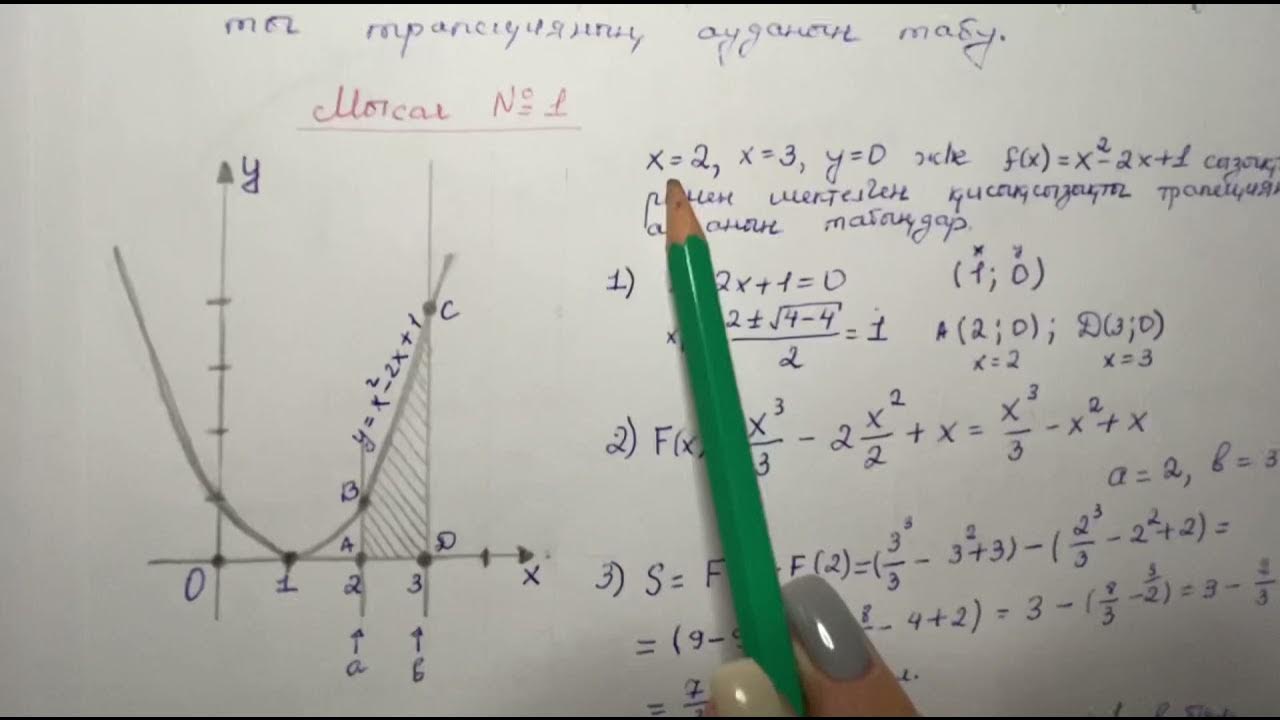 ты трапецияның ауданын табу.
Мысал №1
x=2, x=3, y=0 және f(x)=x²-2x+1
мен шектелген қисықсызықты
табыңдар.
1) 2x+1=0 (1; 0)
x y
2±√4-4 / 2 = 1 A(2;0); D(3;0)
x=2 x=3
2) F(x) x³/3 - 2 x²/2 + x = x³/3 - x² + x
a=2, b=3
3) S= F F(2)=(3³/3 - 3²+3)-(2³/3 - 2²+2)=
=(9-9 8 - 4+2)=3-(8/3 -2)=3-
= 7
y
y=x²-2x+1
C
B
A D
0 1 2 3 x
a b